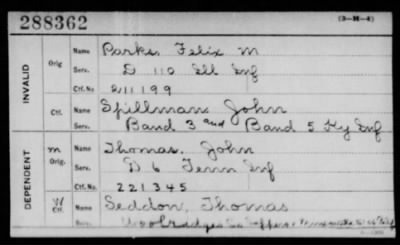 288362
(3-H-4)
INVALID
Orig
Name Parks, Felix M
Serv. D 110 Ill Inf
Ctf. No. 211199
Ctf.
Name Spillman John
Serv. Band 3 and Band 5 Ky Inf
DEPENDENT
m
Orig.
Name Thomas, John
Serv. D 6 Tenn Inf
Ctf. No. 221345
W
Ctf.
Name Seddon, Thomas